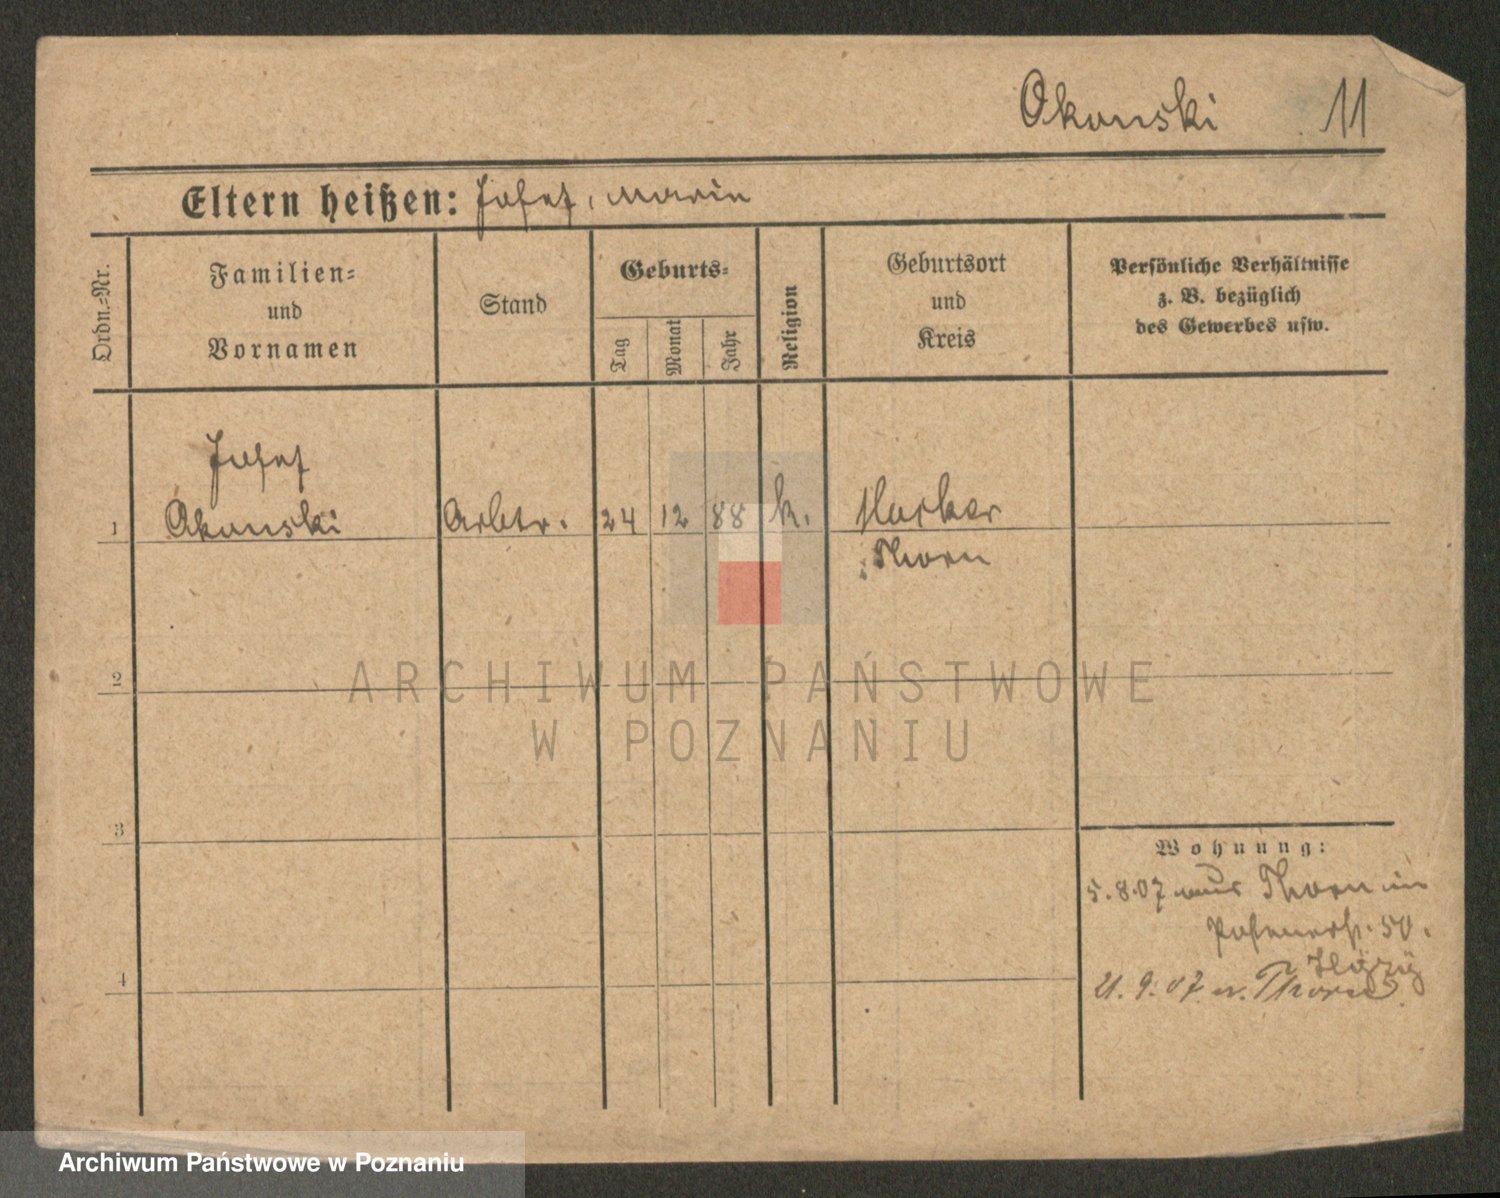 Okonski 11
Eltern heißen: Josef, Marie
Ordn.-Nr.
Familien-
und
Vornamen
Stand
Geburts-
Tag
Monat
Jahr
Religion
Geburtsort
und
Kreis
Persönliche Verhältnisse
z. B. bezüglich
des Gewerbes usw.
Josef
1 Okonski Arbtr. 24 12 88 k. Mocker
Thorn
2
ARCHIWUM PAŃSTWOWE
W POZNANIU
3
Wohnung:
5.8.07 aus Thorn in
Posenerst. 50.
4
21.9.07 n. Thorn
Archiwum Państwowe w Poznaniu